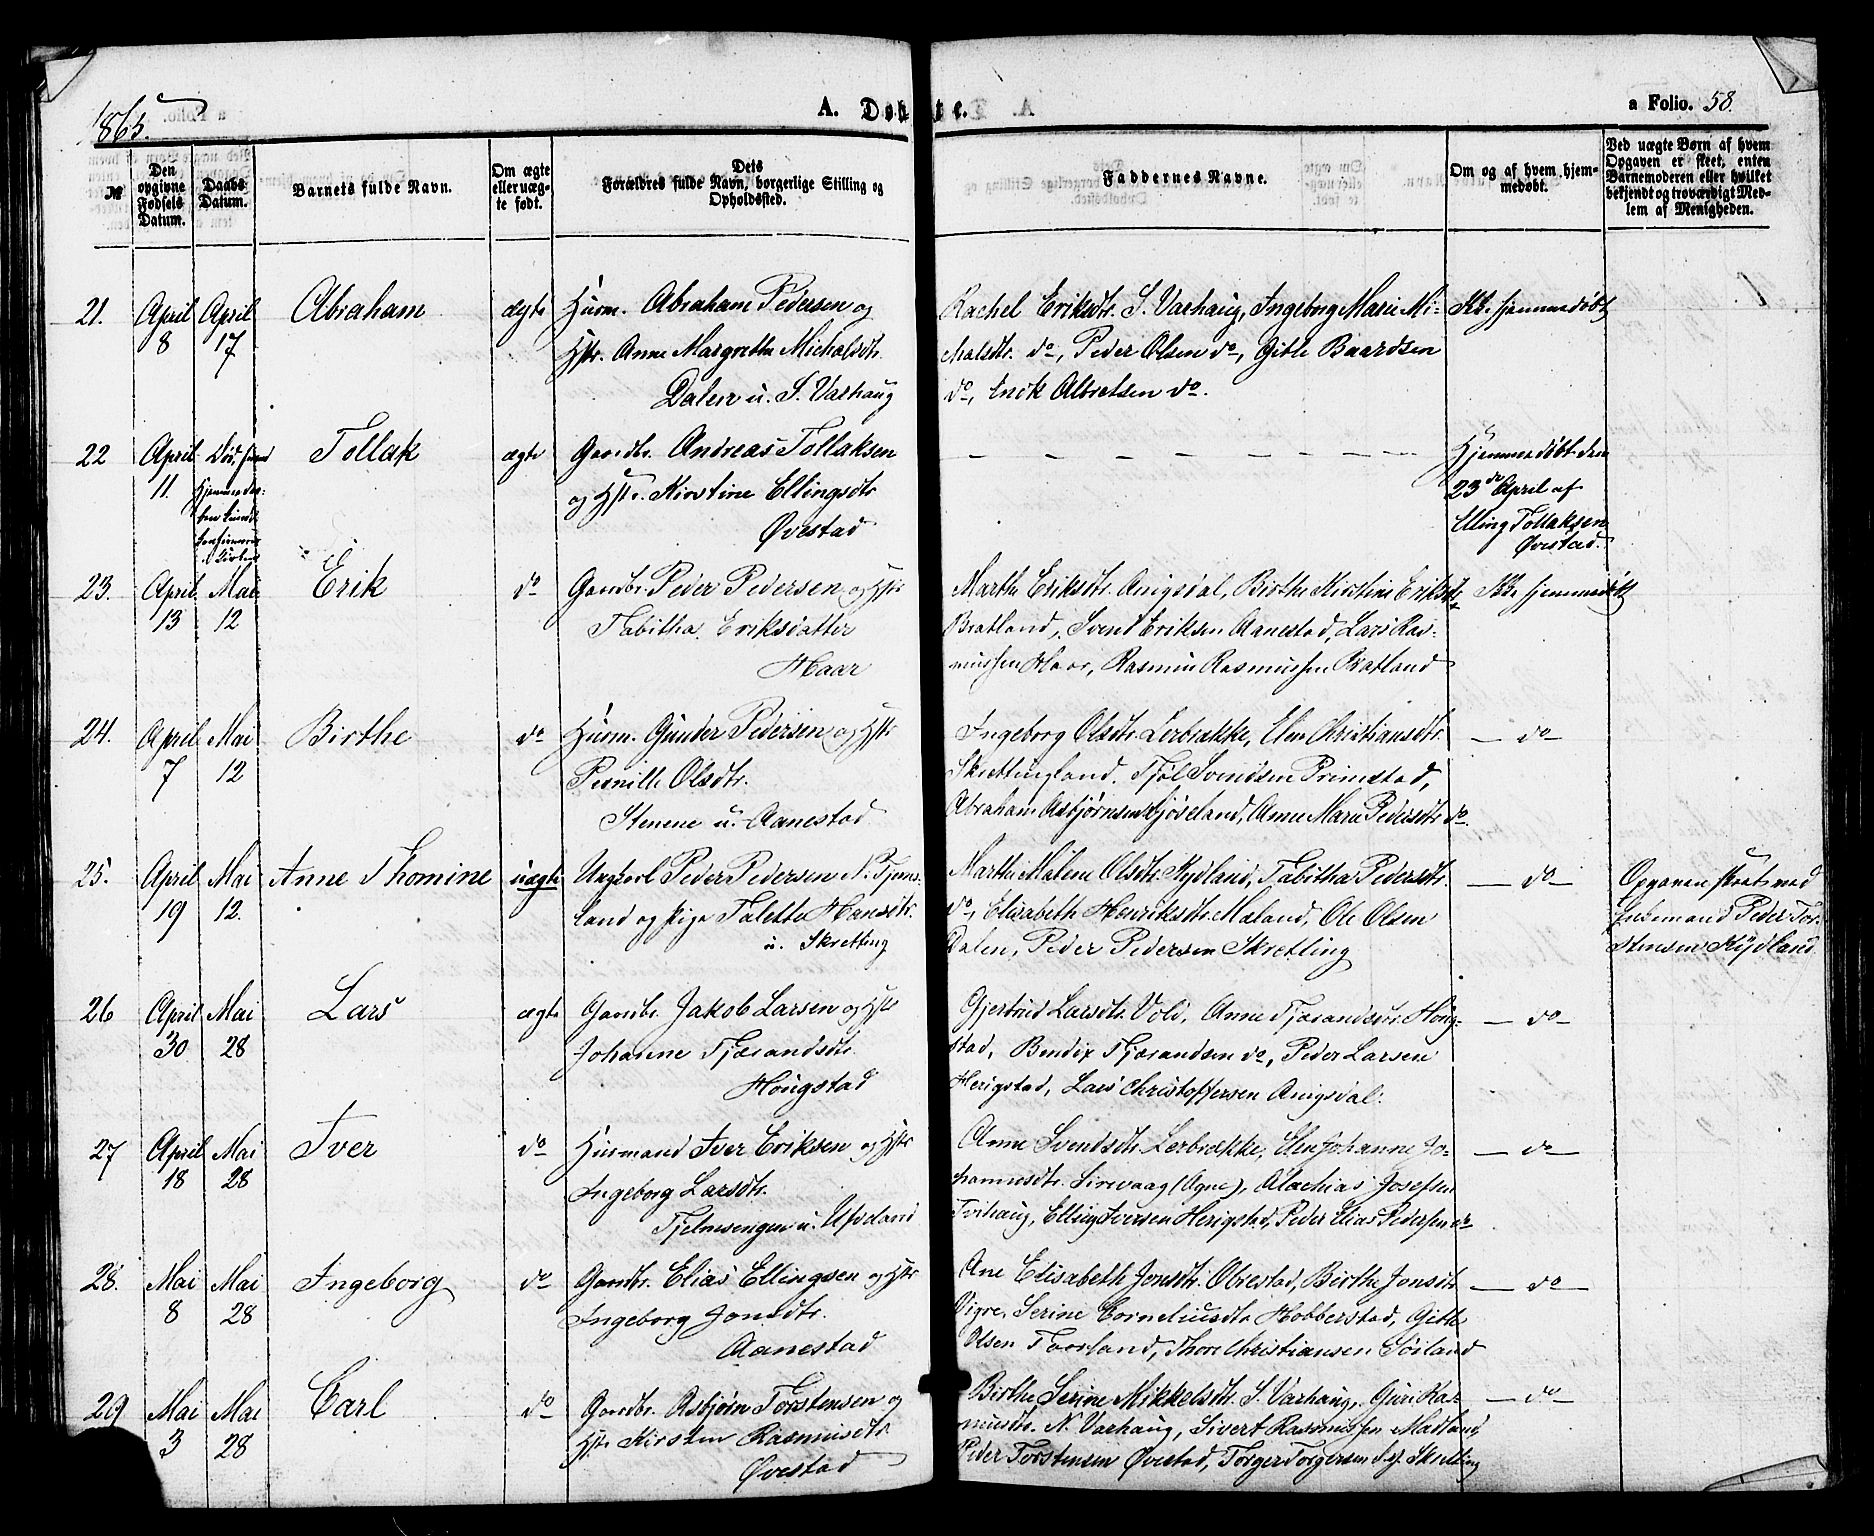 1865.
A. Døbte.
a Folio. 58.
№
Den opgivne Fødsels Datum.
Daabs Datum.
Barnets fulde Navn.
Om ægte eller uægte født.
Dets Forældres fulde Navn, borgerlige Stilling og Opholdssted.
Faddernes Navne.
Om og af hvem hjemmedøbt.
Ved uægte Børn af hvem Opgaven er skeet, enten Barnemoderen eller hvilket bekjendt og troværdigt Medlem af Menigheden.
21. April 8 April 17 Abraham ægte
Huusm. Abraham Pedersen og
Hstr. Anne Margrethe Michalsdtr.
Dalen u. S. Varhaug
Rachel Eriksdtr. S. Varhaug, Ingeborg Marie Mi-
chalsdtr. do, Peder Olsen do, Gitle Baardsen
do, Enok Albretsen do.
Ikke hjemmedøbt
22 April 11. Tollak ægte
Gaardbr. Andreas Tollaksen
og Hstr. Kirstine Ellingsdtr
Øvestad
Hjemmedøbt den
23de April af
Elling Tollaksen
Øvestad.
23. April 13 Mai 12 Erik do
Gaardbr. Peder Pedersen og Hstr
Tabitha Eriksdatter
Haar
Marthe Eriksdtr. Anigsdal, Birthe Kirstine Eriksdtr
Bratland, Svend Eriksen Aanestad, Lars Ras-
mussen Haar, Rasmus Rasmussen Bratland
Ikke hjemmedøbt
24. April 7 Mai 12 Birthe do
Huusm. Gunder Pedersen og Hstr
Pernille Olsdtr.
Stenene u. Aanestad
Ingeborg Olsdtr. Lerbrække, Elen Christiansdtr.
Skrettingland. Tjøl Svendsen Primstad,
Abraham Asbjørnsen Kjøveland, Anne Marie Pedersdtr do.
— do —
25. April 19 Mai 12. Anne Thomine uægte
Ungkarl Peder Pedersen N. Tjems-
land og Pige Talette Hansdtr.
u. Skretting
Marthe Malene Olsdtr. Kydland, Tabitha Pedersdtr.
do, Elisabeth Henriksdtr. Maland, Ole Olsen
Dalen, Peder Pedersen Skretling
— do —
Opgaven skeet ved
Lensmand Peder Tor-
stensen Kydland
26 April 30 Mai 28 Lars ægte
Gaardbr. Jakob Larsen og Hstr
Johanne Tjærandsdtr.
Hougstad
Gjertrud Larsdtr. Vold, Anne Tjærandsdtr. Houg-
stad, Bendix Tjærandsen do, Peder Larsen
Herigstad, Lars Christoffersen Anigsdal.
— do —
27 April 18 Mai 28 Iver do
Huusmand Iver Eriksen og Hstr
Ingeborg Larsdtr.
Tjelmsengen u. Ueland
Anne Svendsdtr. Lerbrække, Elen Johanne Jo-
hannesdtr. Sirevaag (Ogne), Malachias Josefsen
Tvihaug, Elling Iversen Herigstad, Peder Elias Pedersen do
— do —
28. Mai 8 Mai 28 Ingeborg do
Gaardbr. Elias Ellingsen og Hstr
Ingeborg Jonsdtr.
Aanestad
Ane Elisabeth Jonsdtr. Obrestad, Birthe Jonsdtr
Vigre, Serine Corneliusdtr Hobberstad, Gitle
Olsen Taarland, Thore Christiansen Søiland
— do —
29 Mai 3 Mai 28 Carl do
Gaardbr. Asbjørn Torstensen og
Hstr Kirsten Rasmusdtr
Øvestad
Birthe Serine Mikkelsdtr. S. Varhaug, Guri Ras-
musdtr. N. Varhaug, Sivert Rasmussen Madland
Peder Torstensen Øvestad, Torger Torgersen Skretting
— do —